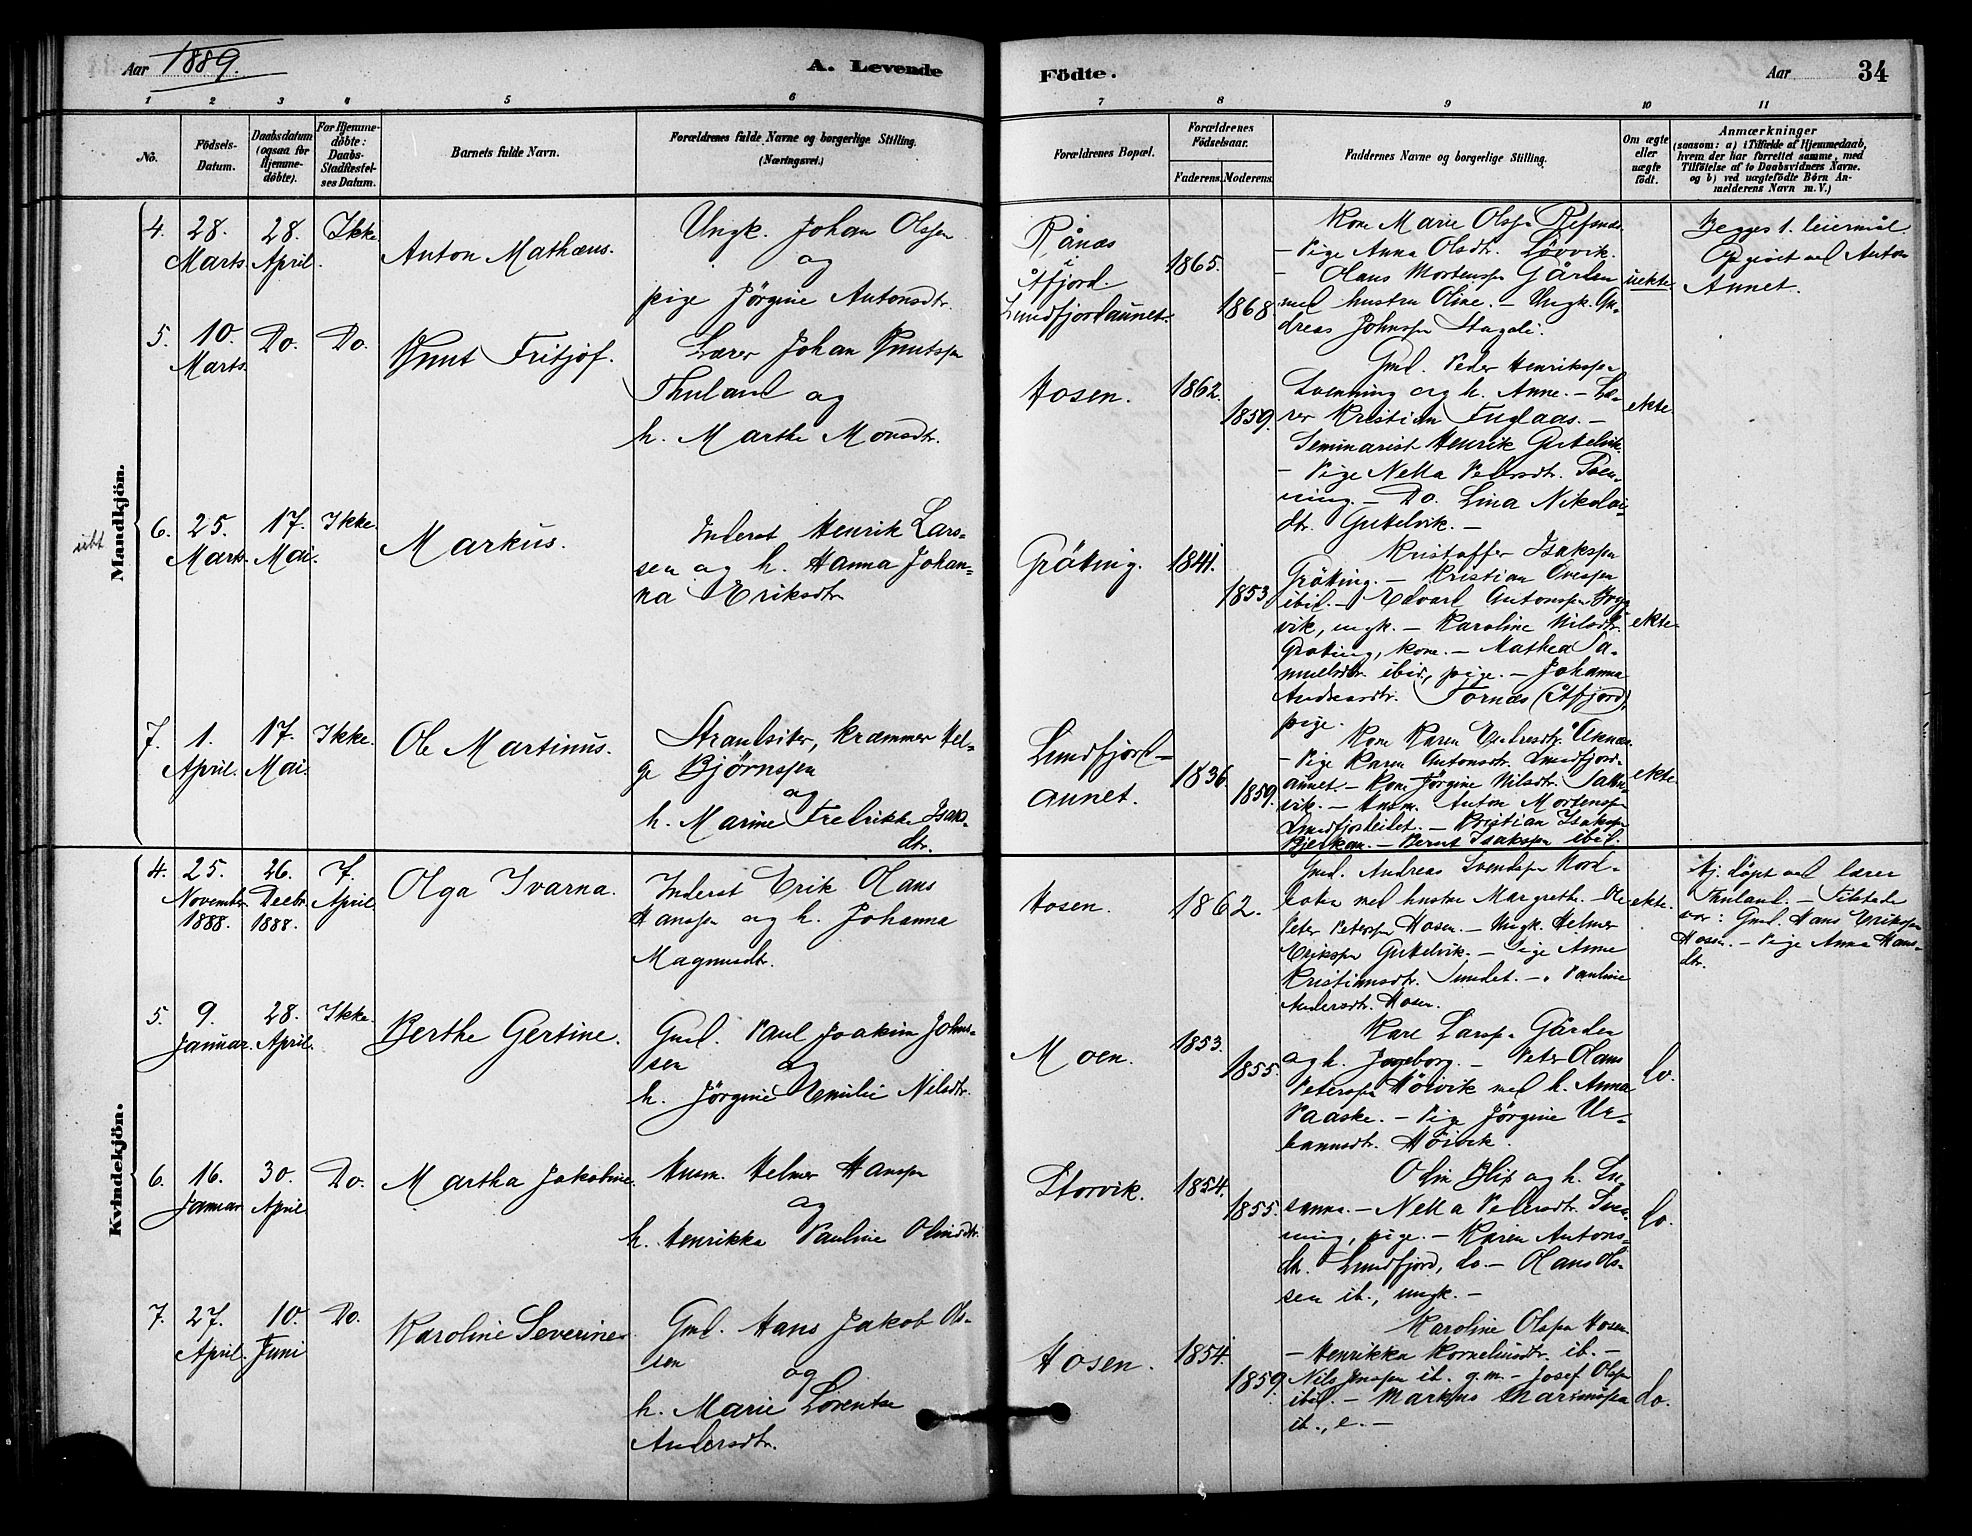 Aar 1889.
A. Levende
Födte.
Aar
34
1 2 3 4 5 6 7 8 9 10 11
No.
Födsels-
Datum.
Daabsdatum
(ogsaa for
Hjemme-
döbte).
For Hjemme-
döbte:
Daabs-
Stadfæstel-
ses Datum.
Barnets fulde Navn.
Forældrenes fulde Navne og borgerlige Stilling.
(Næringsvei.)
Forældrenes Bopæl.
Forældrenes
Födselsaar.
Faderens. Moderens.
Faddernes Navne og borgerlige Stilling.
Om ægte
eller
uægte
födt.
Anmærkninger
(saasom: a) i Tilfælde af Hjemmedaab,
hvem der har forrettet samme, med
Tilföielse af to Daabsvidners Navne.
og b) ved uægtefödte Börn An-
melderens Navn m. V.)
Mandkjön.
4.
28.
Marts.
28.
April.
Ikke
Anton Mathæus.
Ungk. Johan Olssen
og
pige Jörgine Antonsdtr.
Rånæs
i
Åfjord.
Lundfjordaunet.
1865.
1868.
Kone Marie Olsen Refsnæs.
– Pige Anna Olsdtr. Løvvik.
– Hans Mortensen Gården
med hustru Oline. – Ungk. An-
dreas Johnsen
uekte
Begges 1. leiermål.
Opgivet ved Anton
Aunet.
5.
10.
Marts.
Do.
Do.
Knut Fritjof.
Lærer Johan Knutsen
Thuland og
h. Marthe Monsdtr.
Hosen.
1862.
1859.
Gmd. Peder Henriksen
Svenning og h. Anne. – Læ-
rer Kristian Fuglaas. –
Seminarist Henrik Guttelvik
– Pige Netta Pedersdtr. Sven-
ning. – Do. Lina Nikolai-
dtr. Guttelvik. –
ekte.
6.
25.
Marts.
17.
Mai.
Ikke.
Markus.
Inderst Henrik Lars-
sen og h. Hanna Johan-
na Eriksdtr
Gröting.
1841.
1853
Kristoffer Isaksen
Gröting. – Kristian Ovesen
ibid. – Edvard Antonsen
vik, ungk. – Karoline Nilsdtr.
Gröting, kone. – Mathea Sa-
muelsdtr. ibid., pige. – Johanna
Andreasdtr. Tornæs (Åfjord),
pige.
ekte
7.
1.
April.
17.
Mai.
Ikke.
Ole Martinus.
Strandsitter, kræmmer Hel-
ge Bjørnsen
og
h. Marine Fredrikke Isaks-
dtr.
Lundfjord-
aunet.
1836
1859.
Kone Karen Endresdtr.
– Pige Karen Antonsdtr. Lundfjord-
aunet. – Kone Jörgine Nilsdtr.
vik. – Husm. Anton Mortensen
– Kristian Isaksen
– Bernt Isaksen ibid.
ekte
Kvindekjön.
4.
25.
November
1888.
26.
Decbr.
1888.
7.
April
Olga Ivarna.
Inderst Erik Hans
Hansen og h. Johanna
Magnusdtr.
Hosen.
1862.
Gmd. Andreas Svendsen Nord-
med hustru Margrethe. Ole
Peter Petersen Hosen. – Ungk. Helmer
Eriksen Guttelvik. – Pige Anne
Kristiansdtr. Sundet. – " Pauline
Andersdtr. Hosen.
ekte.
Hj. döpt ved lærer
Thuland. – Tilstede
var: Gmd. Hans Eriksen
Hosen. – Pige Anna Hans-
dtr.
5.
9.
Januar.
28.
April.
Ikke.
Berthe Gertine.
Gmd. Paul Joakim Johns-
sen og
h. Jörgine Emilie Nilsdtr.
Moen.
1853.
1855.
Karl Larsen Gården
og h. Ingeborg. – Peter Hans
Petersen Höivik med h. Anna
Paaske. – Pige Jörgine Ur-
bannsdtr. Höivik.
do.
6.
16.
Januar
30.
April
Do.
Martha Jakobine.
Husm. Helmer Hansen
og
h. Henrikka Pauline Olinsdtr.
Storvik.
1854.
1855.
Odin Blix og h. Su-
sanna. – Netta Pedersdtr. Sven-
ning, pige. – Karen Antons-
dtr. Lundfjord, do. – Hans Ols-
sen ib., ungk. –
do.
7.
27.
April.
10.
Juni
Do.
Karoline Severine.
Gmd. Hans Jakob Ols-
sen
og
h. Marie Lorentse
Andersdtr.
Hosen.
1854.
1859.
Karoline Olsen Hosen.
– Henrikka Korneliusdtr. ib. –
Nils Jensen ib. g.m. – Josef Olsen
ibid. – Markus
ib., e. –
do.